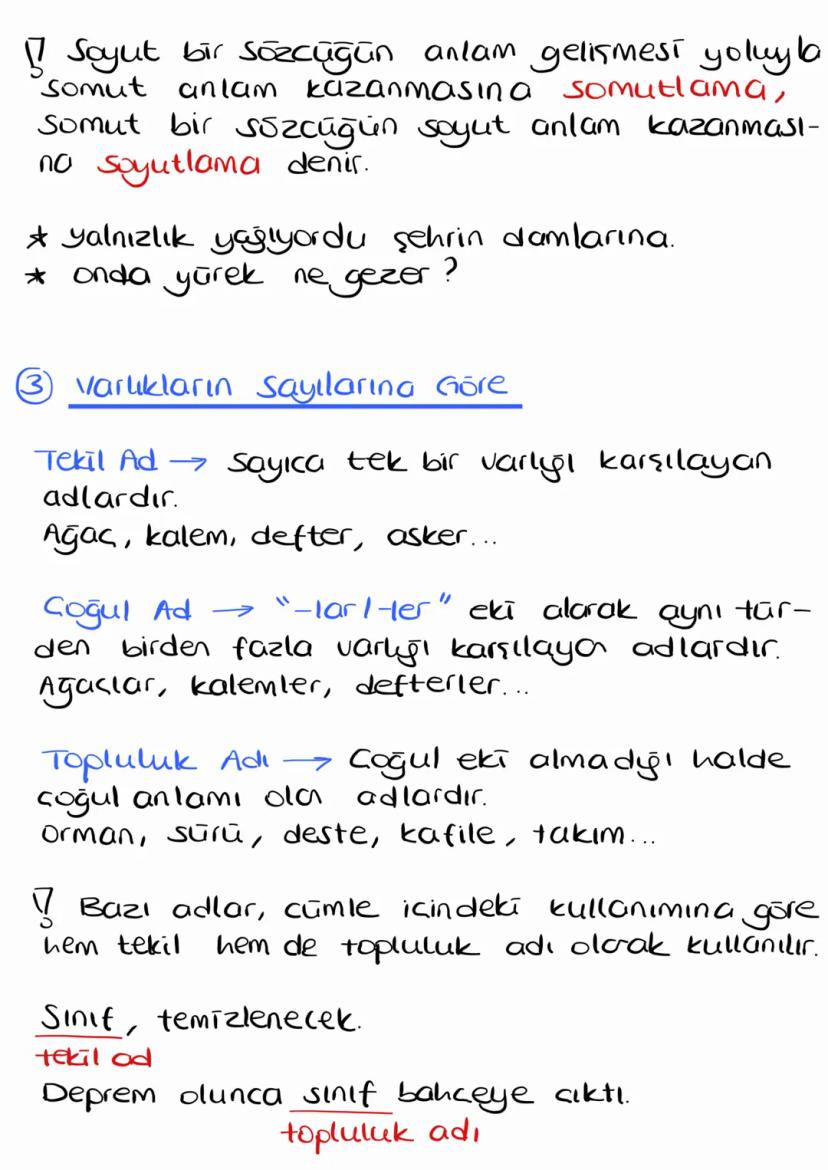 ! Soyut bir sözcüğün anlam gelişmesi yoluyla
somut anlam kazanmasına somutlama,
somut bir sözcüğün soyut anlam kazanması-
na soyutlama denir.
* yalnızlık yağıyordu şehrin damlarına.
* onda yürek ne gezer?
3 Varlıkların Sayılarına Göre
Tekil Ad → Sayıca tek bir varlığı karşılayan
adlardır.
Ağaç, kalem, defter, asker...
Çoğul Ad → "-lar/-ler" eki alarak aynı tür-
den birden fazla varlığı karşılayan adlardır.
Ağaçlar, kalemler, defterler...
Topluluk Adı → Çoğul eki almadığı halde
çoğul anlamı olan adlardır.
Orman, sürü, deste, kafile, takım...
! Bazı adlar, cümle içindeki kullanımına göre
hem tekil hem de topluluk adı olarak kullanılır.
Sınıf, temizlenecek.
tekil ad
Deprem olunca sınıf bahçeye çıktı.
topluluk adı